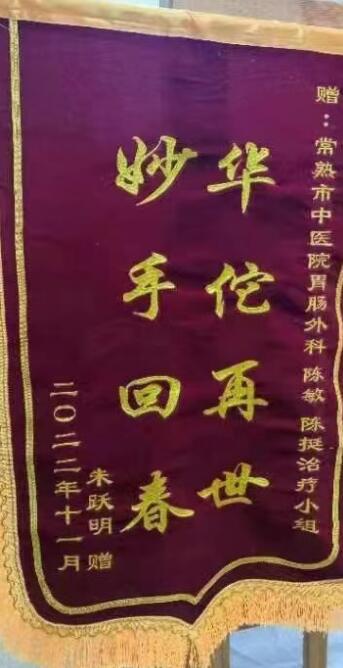 赠：常熟市中医院胃肠外科 陈敏 陈挺治疗小组
华佗再世
妙手回春
朱跃明赠
二〇二二年十一月